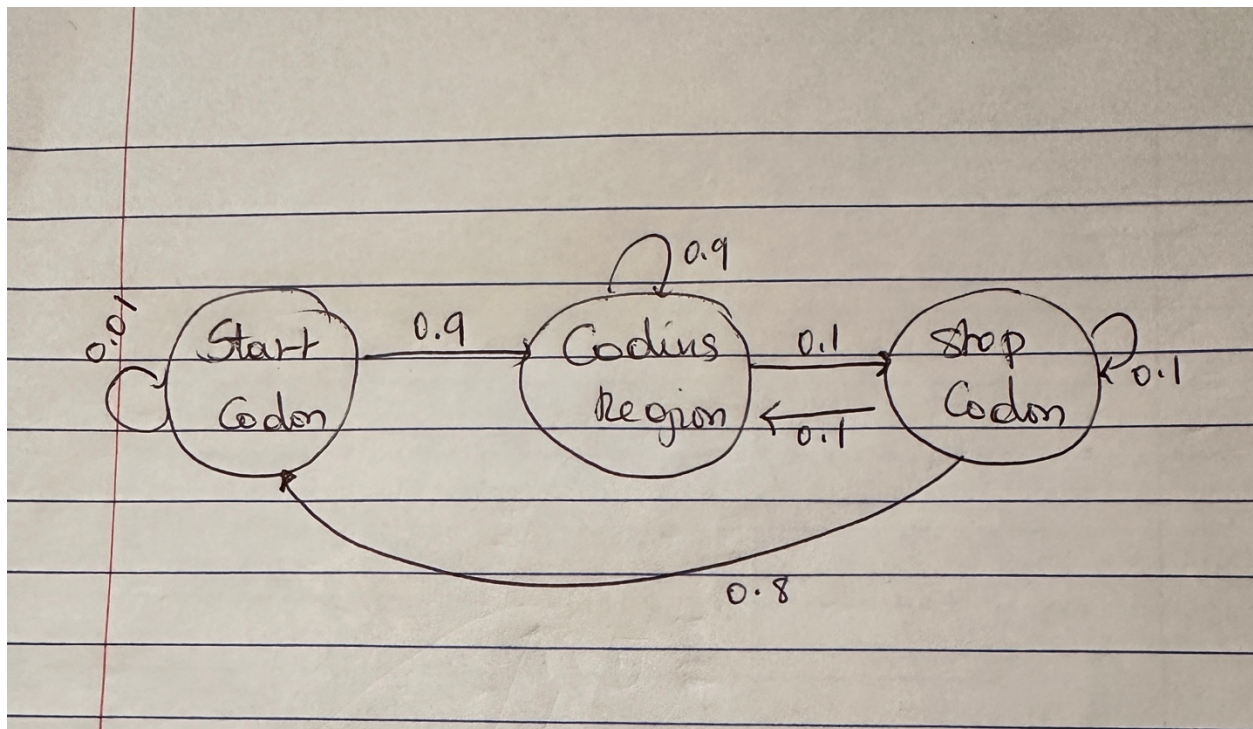 0.9
0.01
Start
Codon
0.9
Coding
Region
0.1
0.1
Stop
Codon
0.1
0.8